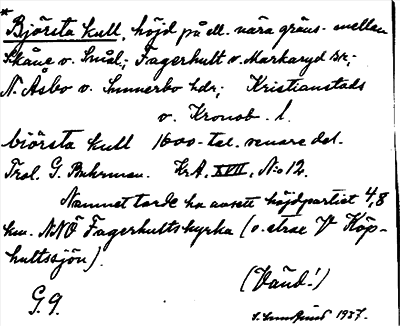 * Björsta kull, höjd på ell. nära gräns mellan
Skåne o. Smål; Fagerhult o. Markaryd sr;
N. Åsbo o. Sunnerbo hdr; Kristianstads
o. Kronob. l.
biörsta kull 1600-tal. senare del.
Trol. G. Buhrman. KrA. XVII, N:o 12.
Namnet torde ha avsett höjdpartiet 4,8
km. NNÖ Fagerhults kyrka (o. strax V Köp-
hultssjön).
(Vänd!)
G. g.
1937.